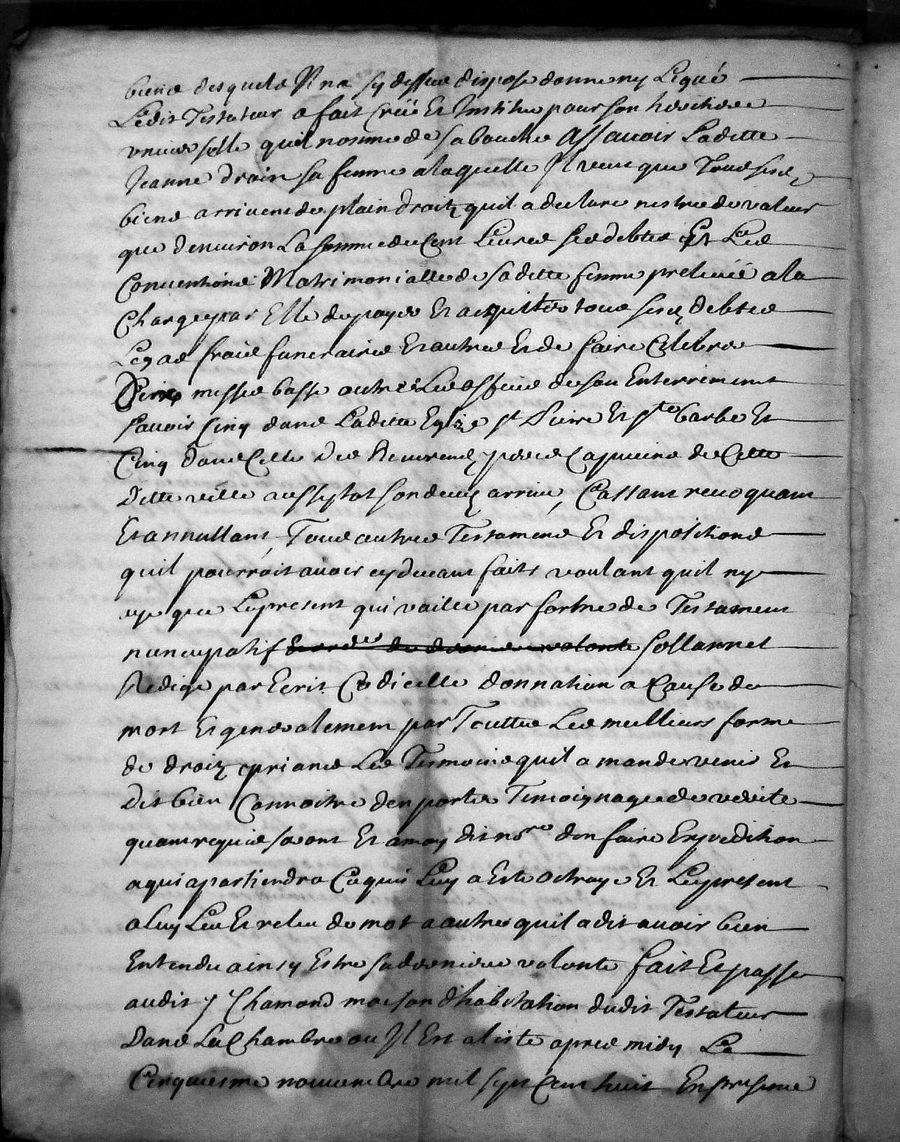 biens desquels Il na sy dessus dispose donne ny Legué
Ledit Testateur a fait Créé Et Institue pour son heritiere
universelle quil nomme de sa bouche Assavoir Laditte
Jeanne drain sa femme a laquelle Il veut que Tous sesd
biens arrivent de plain droit quil a declare nestre de valeur
que denviron La somme de Cent Livres ses debtes Et Les
Conventions Matrimonialle de saditte femme prelevés a la
Charge par Elle de payer Et acquitter tous sesd debtes
Legas frais funeraires Et autres Et de faire Celebrer
Dix messes basse outre Les offices de son Enterrement
savoir Cinq dans Laditte Eglize st Pierre Et ste barbe Et
Cinq dans Celle des Reverends peres Capucins de Cette
ditte ville aussytot son deces arrivé, Cassant revoquant
Et annullant Tous autres Testamens Et dispositions
quil pourroit avoir cy devant faits voulant quil ny
aye que Le present qui vaille par forme de Testament
nuncupatif Et ordre de derniere volonte sollannel
Redige par Ecrit Codicille donnation a Cause de
mort Et generalement par Touttes Les meilleurs forme
de droit priant Les Temoins quil a mande venir Et
dit bien Connoitre den porter Temoignage de verite
quant requis seront Et a moy dit nore den faire Expedition
a qui apartiendra Ce qui Luy a Este octroye Et Le present
a luy Leu Et releu de mot a autre quil a dit avoir bien
Entendu ainsy Estre sa derniere volonte fait Et passe
audit St Chamond maison dhabitation dudit Testateur
Dans La Chambre ou Il Est aliste apres midy Le
Cinquiesme novembre mil sept Cent huit En presence